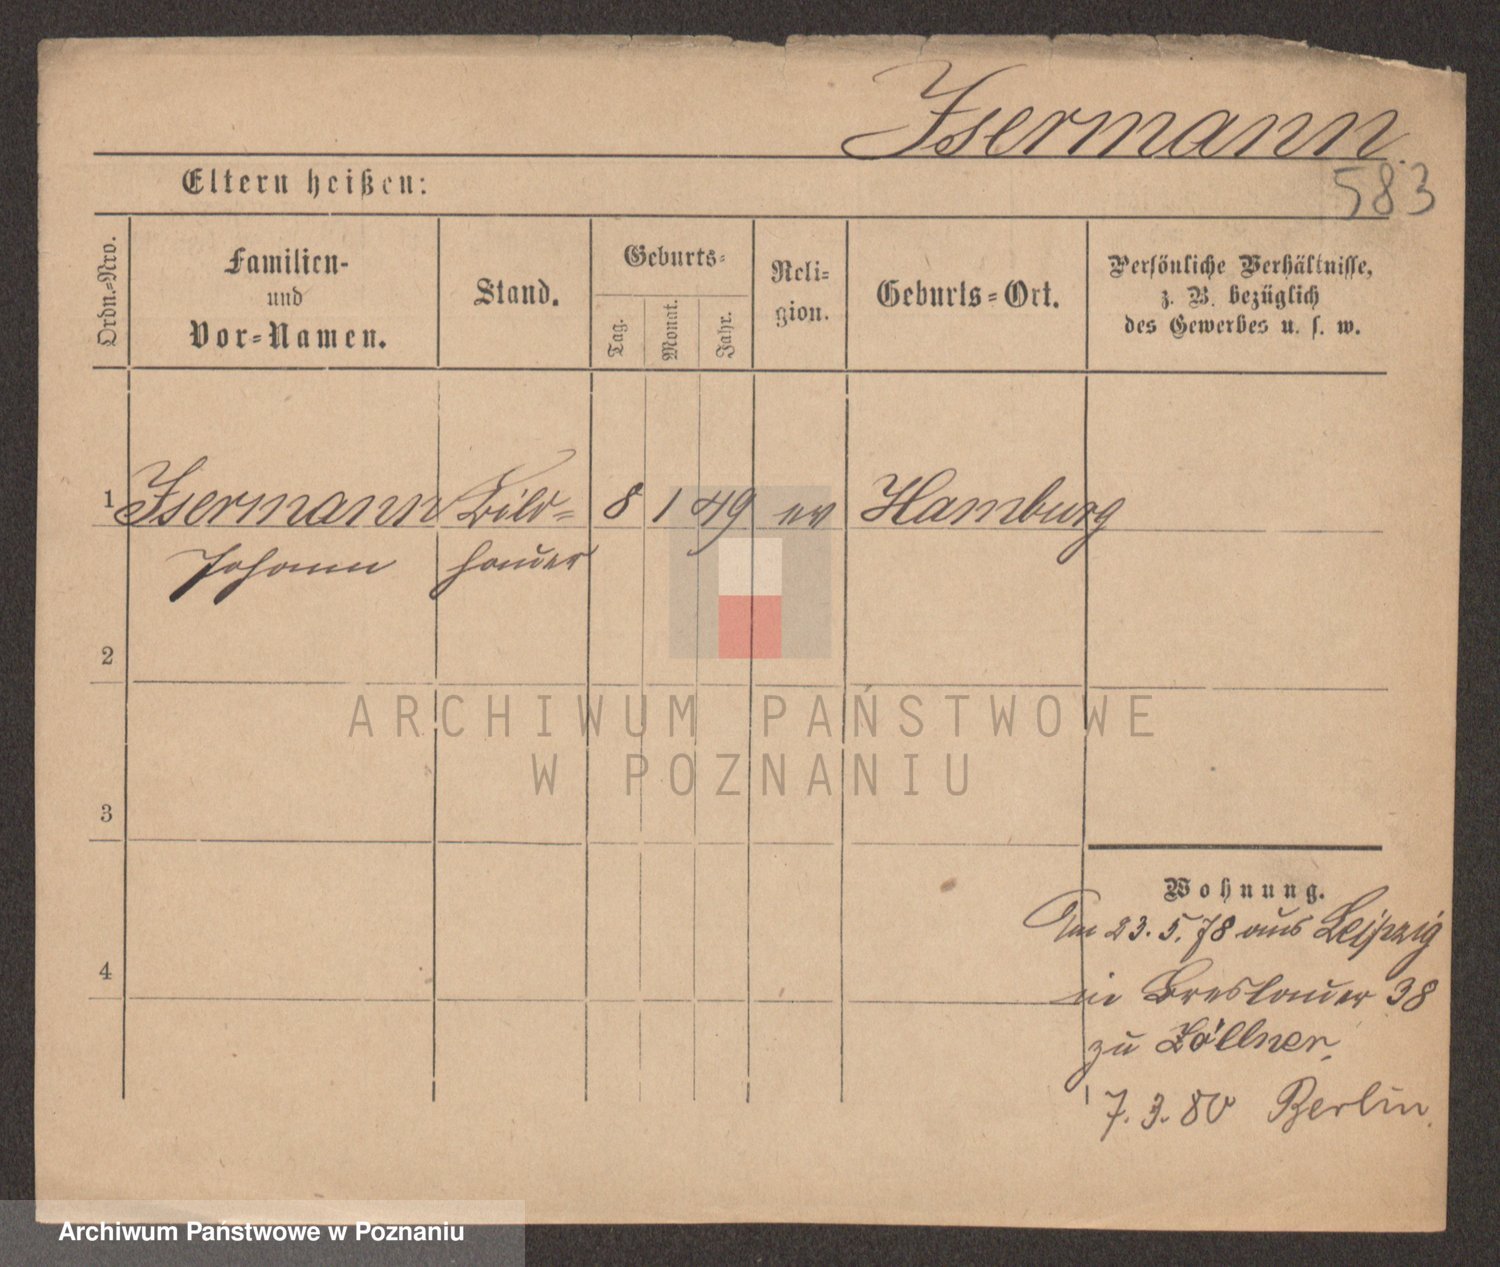 Isermann.
583
Eltern heißen:
Ordn.-Nro.
Familien-
und
Vor-Namen.
Stand.
Geburts-
Tag.
Monat.
Jahr.
Reli-
gion.
Geburts-Ort.
Persönliche Verhältnisse,
z. B. bezüglich
des Gewerbes u. s. w.
1 Isermann Bild= 8 1 49 ev Hamburg
Johann hauer
2
ARCHIWUM PAŃSTWOWE
W POZNANIU
3
Wohnung.
Am 23. 5. 78 aus Leipzig
4
in Breslauer 38
zu Zöllner.
7. 3. 80 Berlin.
Archiwum Państwowe w Poznaniu